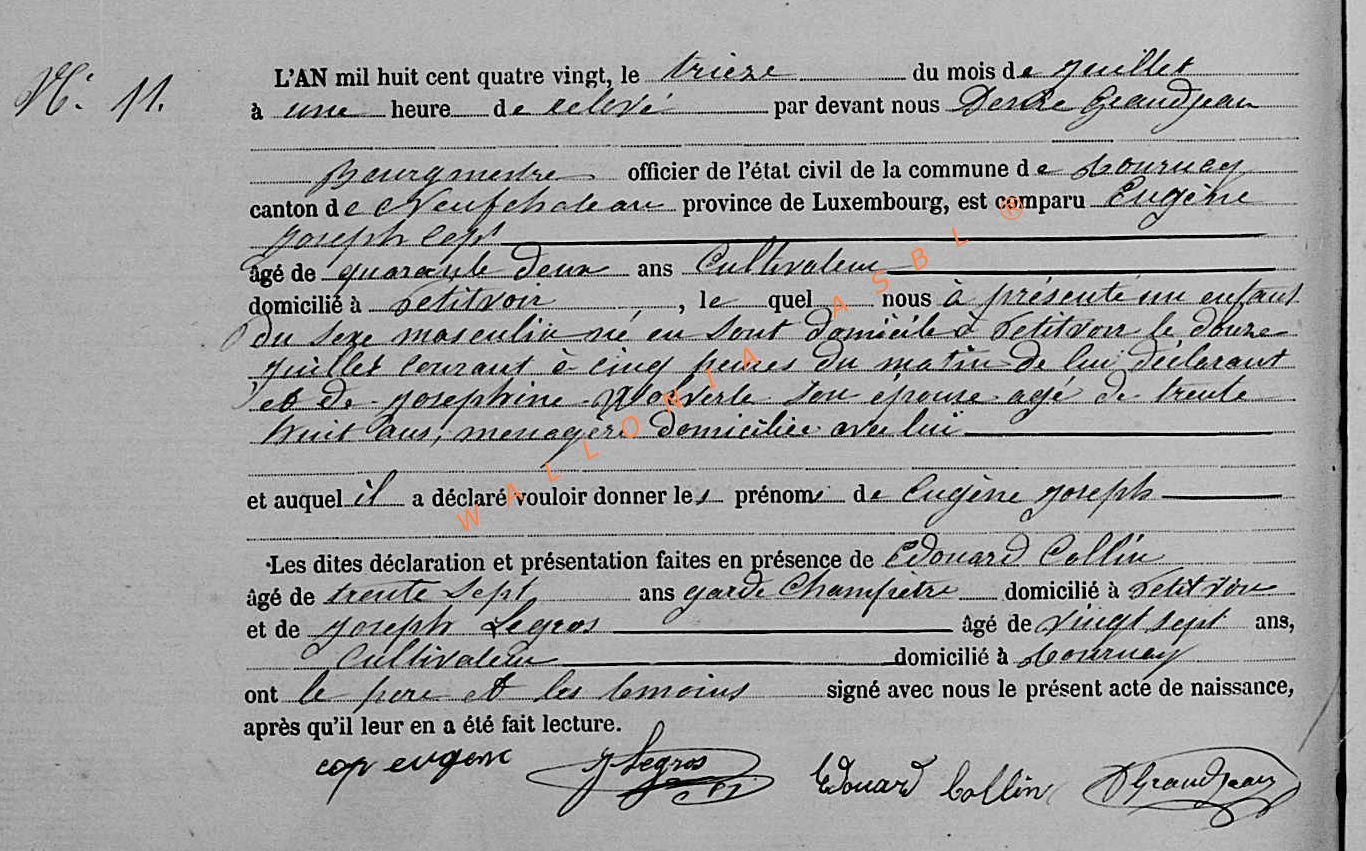 N° 11.
L'AN mil huit cent quatre vingt, le trieze du mois de juillet
à une heure de relevé par devant nous Desiré Grandjean
Bourgmestre officier de l'état civil de la commune de Tournay
canton de Neufchateau province de Luxembourg, est comparu Eugène
Joseph Cop
âgé de quarante deux ans Cultivateur
domicilié à Petitvoir, le quel nous à présenté un enfant
du sexe masculin né en sont domicile à Petitvoir le douze
juillet courant à cinq heures du matin de lui déclarant
et de Josephine son épouse agé de trente
huit ans, menagère domiciliée avec lui
et auquel il a déclaré vouloir donner les prénoms de Eugène Joseph
Les dites déclaration et présentation faites en présence de Edouard Collin
âgé de trente sept ans garde Champêtre domicilié à Petitvoir
et de Joseph Legros âgé de vingt sept ans,
Cultivateur domicilié à Tournay
ont le pere et les temoins signé avec nous le présent acte de naissance,
après qu'il leur en a été fait lecture.
cop eugene J Legros Edouard Collin D Grandjean
WALLONIA ASBL ®